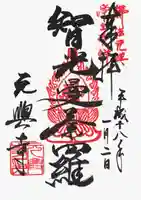 奉拝
平成十八年
一月二日
智光曼荼羅
元興寺